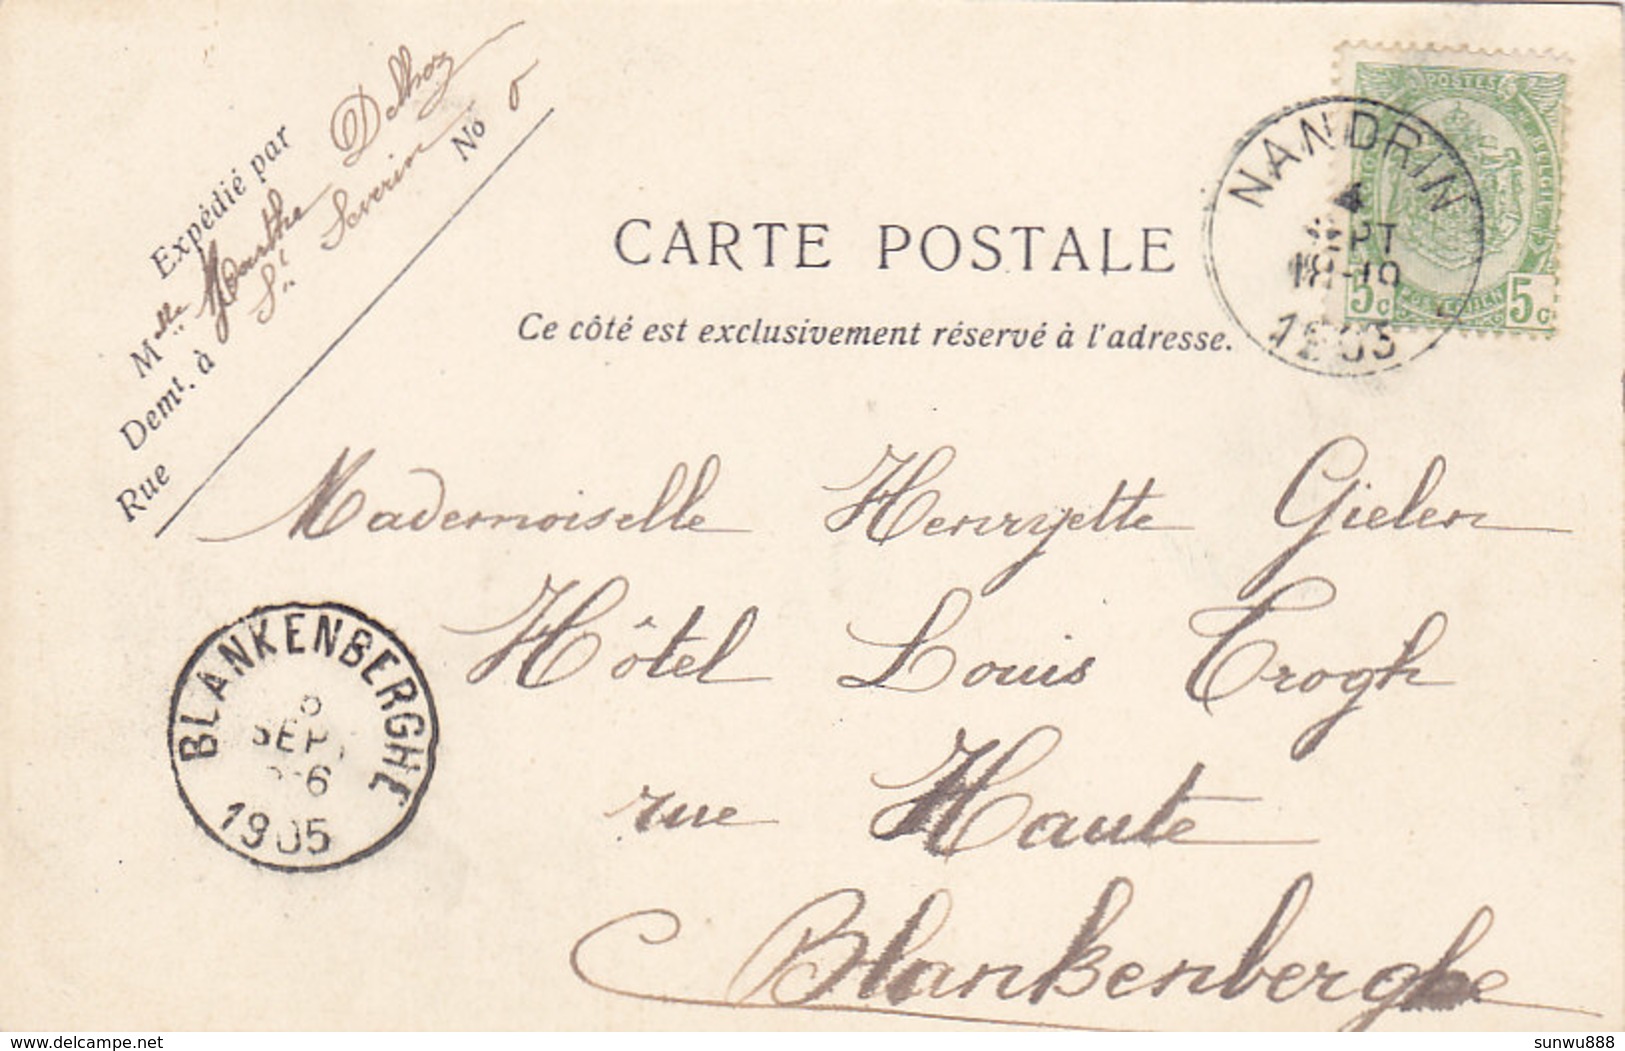 Expédié par
Mlle Marthe Delhez
Demt. à St Séverin
Rue No
CARTE POSTALE
Ce côté est exclusivement réservé à l'adresse.
POSTES
5c POSTERIJEN 5c
NANDRIN
4
SEPT
18-19
1905
Mademoiselle Henryette Gielen
Hôtel Louis Trogh
rue Haute
Blankenberghe
BLANKENBERGHE
SEPT
6
1905
delcampe.net
sunwu888